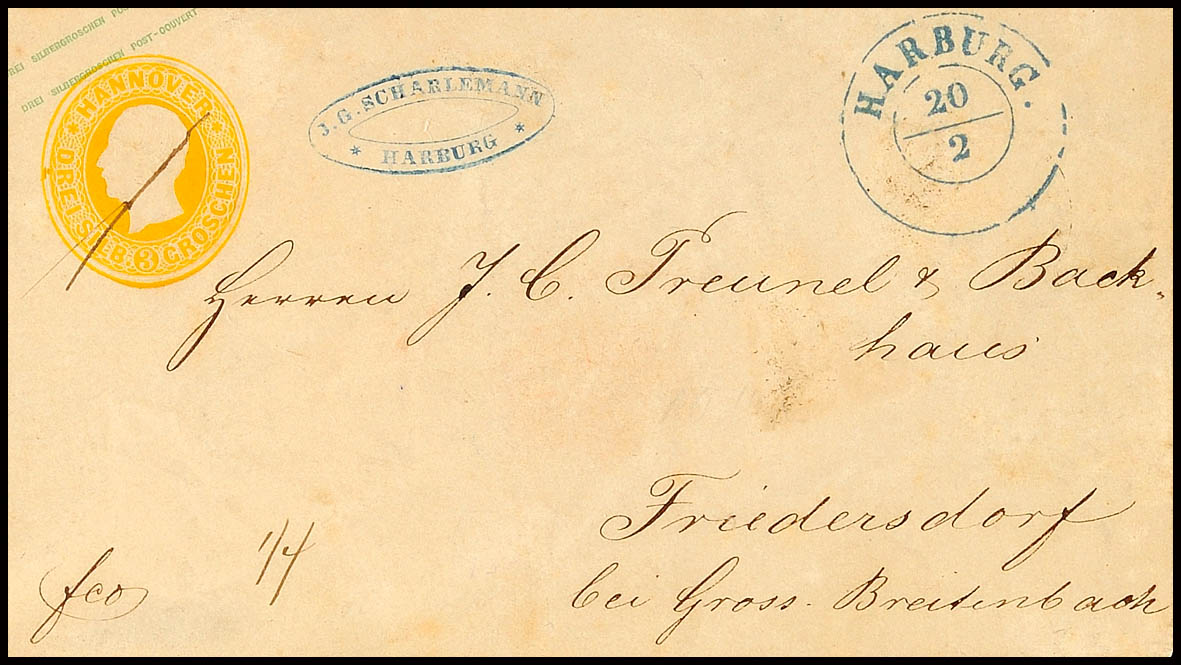 DREI SILBERGROSCHEN POST-COUVERT
DREI SILBERGROSCHEN POST-COUVERT
HANNOVER
DREI SILB. 3 GROSCHEN
J.G. SCHARLEMANN
* HARBURG *
HARBURG.
20
2
Herren J. C. Treunel & Back-
haus
Friedersdorf
bei Gross. Breitenbach
fco
1/4